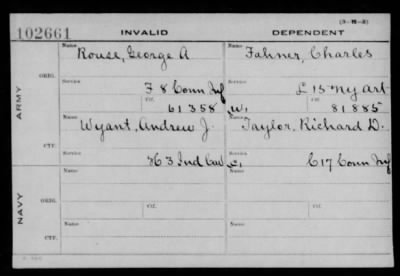 (3-B-3)
102661 INVALID DEPENDENT
Name Rouse, George A Name Fahner, Charles
ARMY
ORIG.
Service F 8 Conn Inf Service L 15 Ny Art
Ctf. 61358 W, Ctf. 81885
Name Wyant, Andrew J. Name Taylor, Richard D.
CTF.
Service H 3 Ind Cav C, Service C 17 Conn Inf
NAVY
Name Name
ORIG.
Ctf. Ctf.
Name Name
CTF.